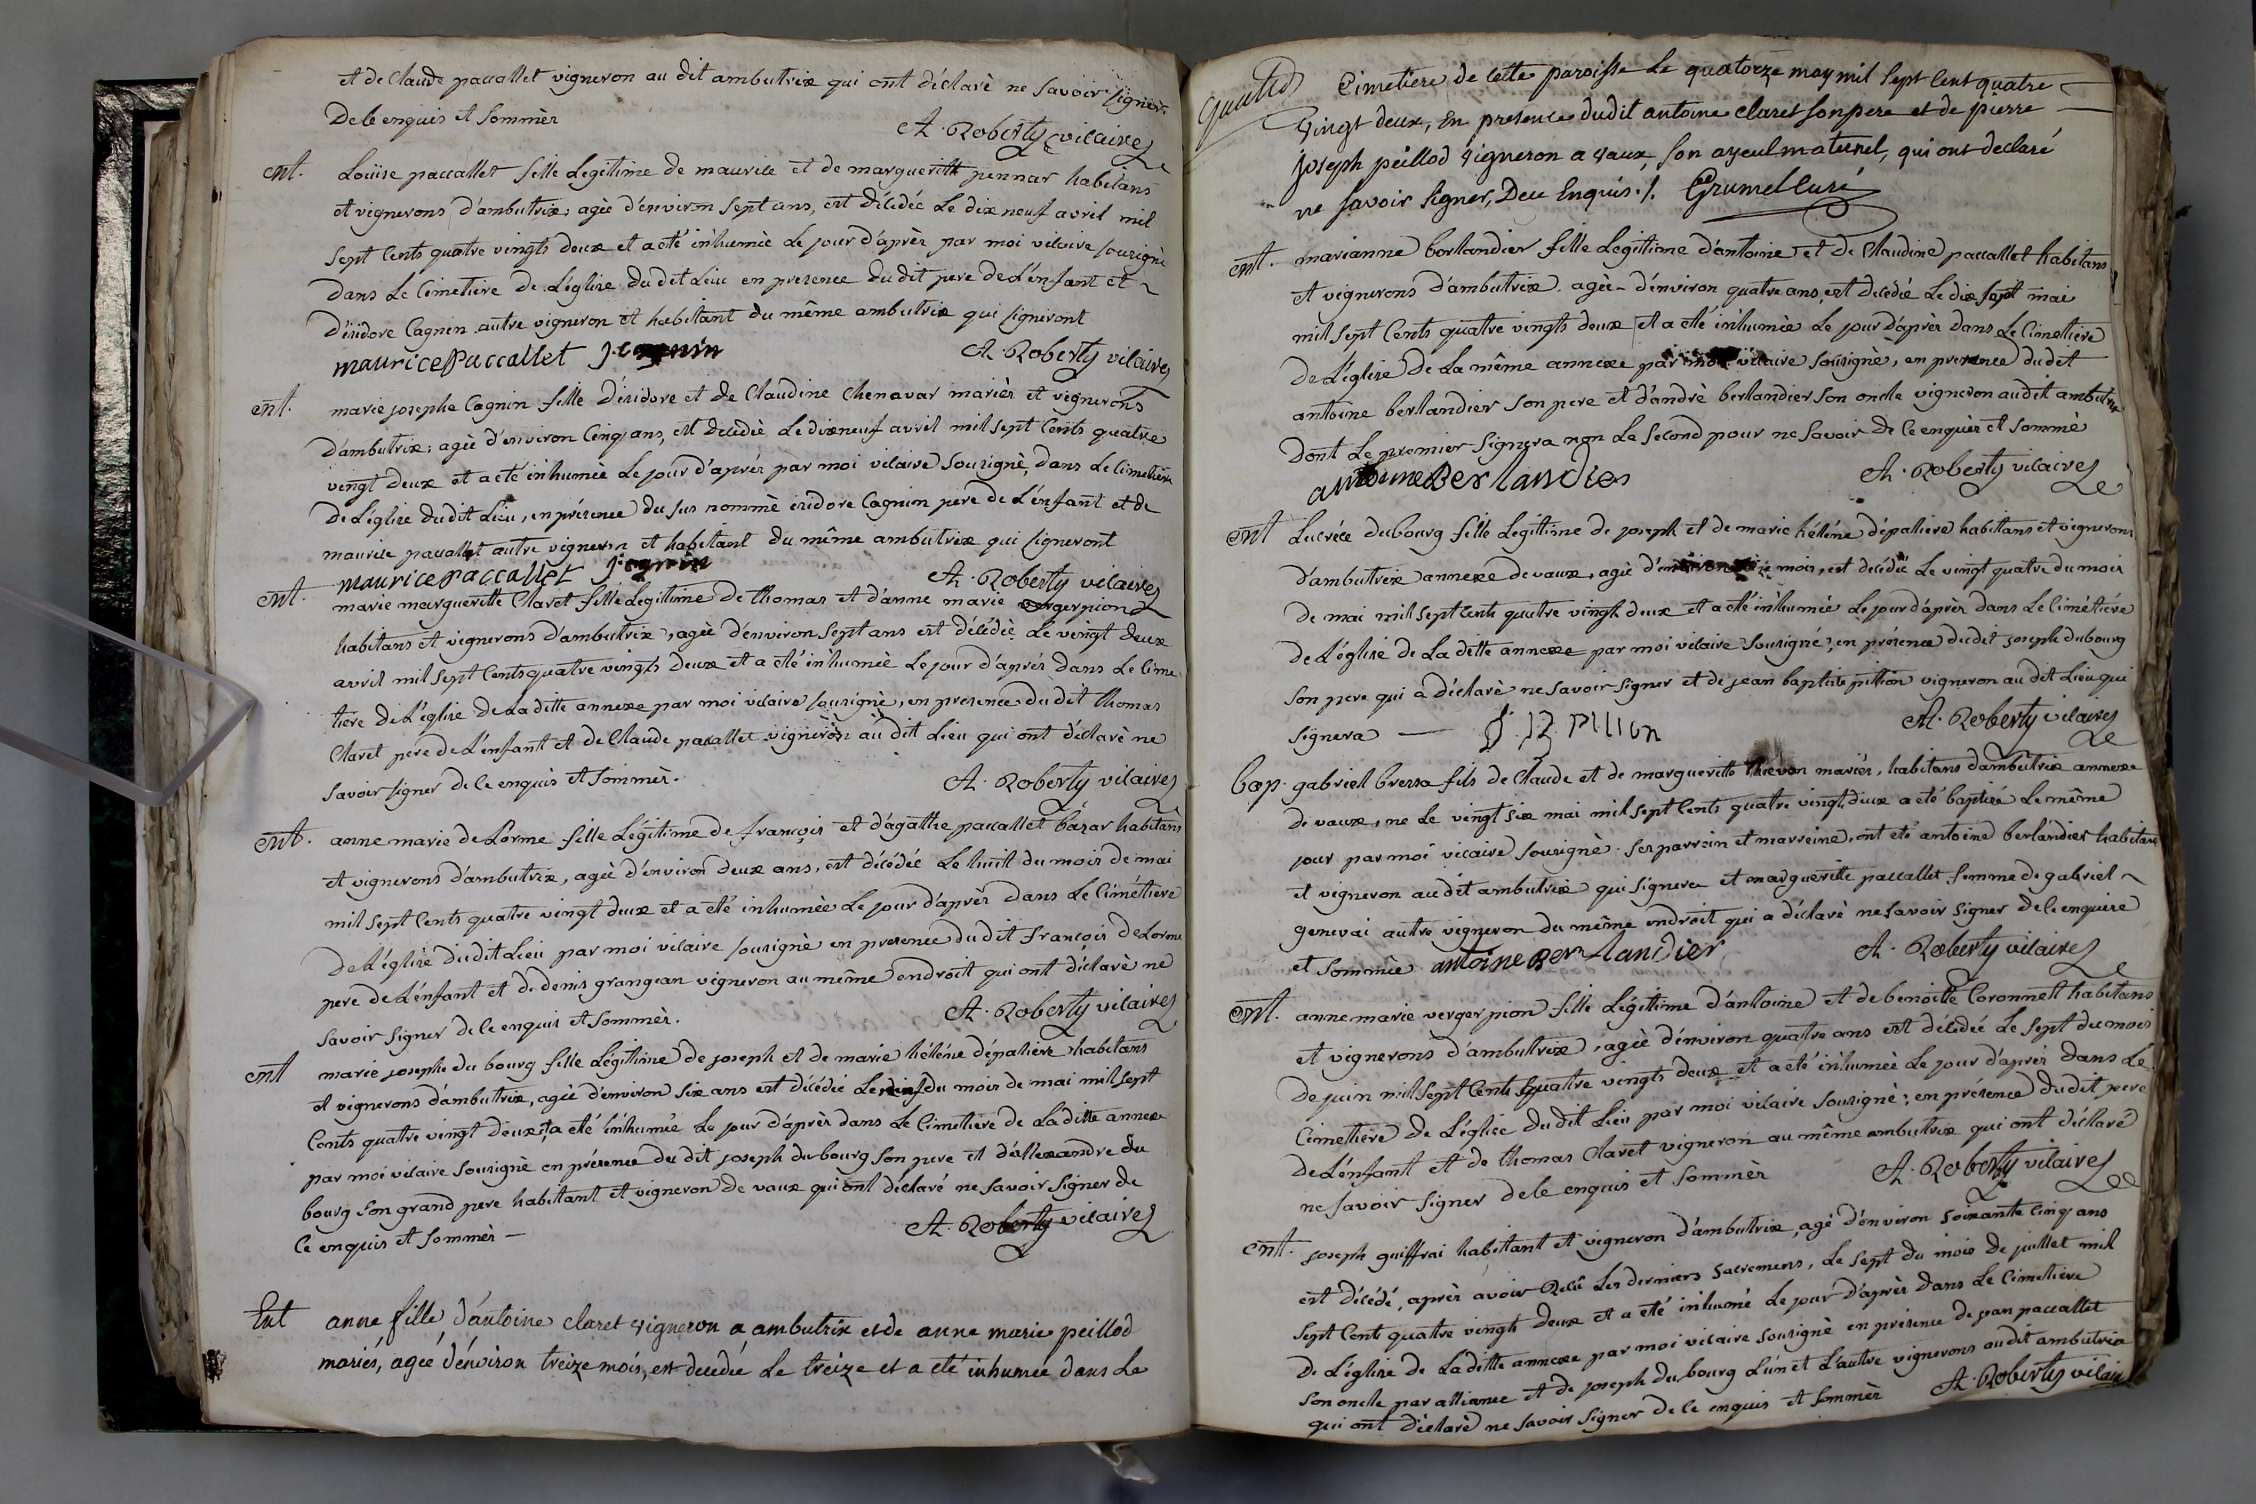 et de Claude paccallet vigneron au dit ambutrix qui ont déclaré ne savoir signer
De le enquis et sommèr
A. Roberty vicaire
ent.
Louise paccallet fille Legitime de maurice et de margueritte pennar habitans
et vignerons d'ambutrix, agèe d'environ sept ans, est décédée Le dix neuf avril mil
sept Cents quatre vingts deux et a eté inhumèe Le jour d'après par moi vicaire sousignè
dans Le Cimetiere de L'église du dit Lieu en presence du dit pere de L'enfant et
d'isidore Cagnin autre vigneron et habitant du même ambutrix qui signeront
maurice Paccallet
A. Roberty vicaire
ent.
marie josephe Cagnin fille d'isidore et de Claudine Chenavar mariès et vignerons
d'ambutrix; agèe d'environ Cinq ans, est decedèe Le dixneuf avril mil sept Cents quatre
vingt deux et a eté inhumèe Le jour d'après par moi vicaire sousignè, dans Le Cimetiere
de L'église du dit Lieu, en présence du sus nommè isidore Cagnin pere de L'enfant et de
maurice paccallet autre vigneron et habitant du même ambutrix qui signeront
maurice Paccallet
A. Roberty vicaire
ent.
marie margueritte Claret fille Legittime de thomas et d'anne marie vergerpion
habitans et vignerons d'ambutrix, agèe d'environ sept ans est décédèe Le vingt deux
avril mil sept Cents quatre vingts deux et a eté inhumèe Le jour d'après dans Le Cime
tiere de L'église de La ditte annexe par moi vicaire sousignè, en presence du dit thomas
Claret père de L'enfant et de Claude paccallet vigneron au dit Lieu qui ont déclarè ne
savoir signer de le enquis et sommèr.
A. Roberty vicaire
ent.
anne marie de Lorme fille Légitime de françois et d'agathe paccallet bazar habitans
et vignerons d'ambutrix, agèe d'environ deux ans, est décédée Le huit du mois de mai
mil sept Cents quatre vingt deux et a eté inhumèe Le jour d'après dans Le Cimétiere
de L'église du dit Lieu par moi vicaire sousignè en presence du dit françois de Lorme
pere de L'enfant et de denis grangean vigneron au même endroit qui ont déclarè ne
savoir signer de le enquis et sommèr.
A. Roberty vicaire
ent
marie josephe du bourg fille Légitime de joseph et de marie hélène dépaliere habitans
et vignerons d'ambutrix, agèe d'environ six ans est décédée Le du mois de mai mil sept
Cents quatre vingt deux et a eté inhumée Le jour d'après dans Le Cimetiere de La ditte annexe
par moi vicaire sousignè en présence du dit joseph du bourg son pere et d'allexandre du
bourg son grand pere habitant et vigneron de vaux qui ont déclaré ne savoir signer de
Ce enquis et sommèr —
A. Roberty vicaire
Ent
anne fille d'antoine claret vigneron a ambutrix et de anne marie peillod
mariés, agée d'environ treize mois, est decedée Le treize et a eté inhumée dans Le
Cimetiere de cette paroisse Le quatorze may mil sept cent quatre
vingt deux, En presence dudit antoine claret son pere et de pierre
joseph peillod vigneron a vaux, son ayeul maternel, qui ont declaré
ne savoir signer, Dece Enquis ./. Grumel Curé
ent.
marianne berlandier fille Legittime d'antoine et de Claudine paccallet habitans
et vignerons d'ambutrix, agèe d'environ quatre ans, est decèdèe Le dix sept mai
mil sept Cents quatre vingts deux et a eté inhumèe Le jour d'après dans Le Cimettiere
de L'église de La même annexe par moi vicaire sousignè, en presence du dit
antoine berlandier son pere et d'andrè berlandier son oncle vigneron au dit ambutrix
dont Le premier signera non Le second pour ne savoir de le enquis et sommè
antoine Berlandier
A. Roberty vicaire
ent
Lucrèce dubourg fille Légittime de joseph et de marie hélène dépalliere habitans et vignerons
d'ambutrix annexe de vaux, agée d'environ mois, est décédèe Le vingt quatre du mois
de mai mil sept Cents quatre vingts deux et a eté inhumèe Le jour d'après dans Le Cimétiére
de L'église de La ditte annexe par moi vicaire sousigné, en présence du dit joseph dubourg
son pere qui a déclarè ne savoir signer et de jean baptiste pittion vigneron au dit Lieu qui
signera —
A. Roberty vicaire
bap.
gabriel bressa fils de Claude et de margueritte thievon mariés, habitans d'ambutrix annexe
de vaux, ne Le vingt six mai mil sept Cents quatre vingts deux a eté baptisé Le même
jour par moi vicaire sousigné. ses parrain et marreine, ont eté antoine berlandier habitant
et vigneron au dit ambutrix qui signera et margueritte paccallet femme de gabriel
genevai autre vigneron du même endroit qui a déclarè ne savoir signer de le enquise
et sommèe antoine Berlandier
A. Roberty vicaire
ent.
anne marie verger pion fille Légittime d'antoine et de benoitte Coronnell habitans
et vignerons d'ambutrix, agèe d'environ quatre ans est décédée Le sept du mois
de juin mil sept Cents quatre vingts deux et a eté inhumèe Le jour d'après dans Le
Cimetiére de L'église du dit Lieu par moi vicaire sousignè; en présence du dit pere
de L'enfant et de thomas Claret vigneron au même ambutrix qui ont déclaré
ne savoir signer de le enquis et sommèr
A. Roberty vicaire
ent.
joseph guiffrai habitant et vigneron d'ambutrix, agè d'environ soixante Cinq ans
est décédé, après avoir Reçû Les derniers sacremens, Le sept du mois de juillet mil
sept Cents quatre vingts deux et a eté inhumé Le jour d'après dans Le Cimetiere
de L'église de La ditte annexe par moi vicaire sousigné en présence de jean paccallet
son oncle par alliance et de joseph du bourg L'un et L'autre vignerons au dit ambutrix
qui ont déclarè ne savoir signer de Ce enquis et sommèr A. Roberty vicaire